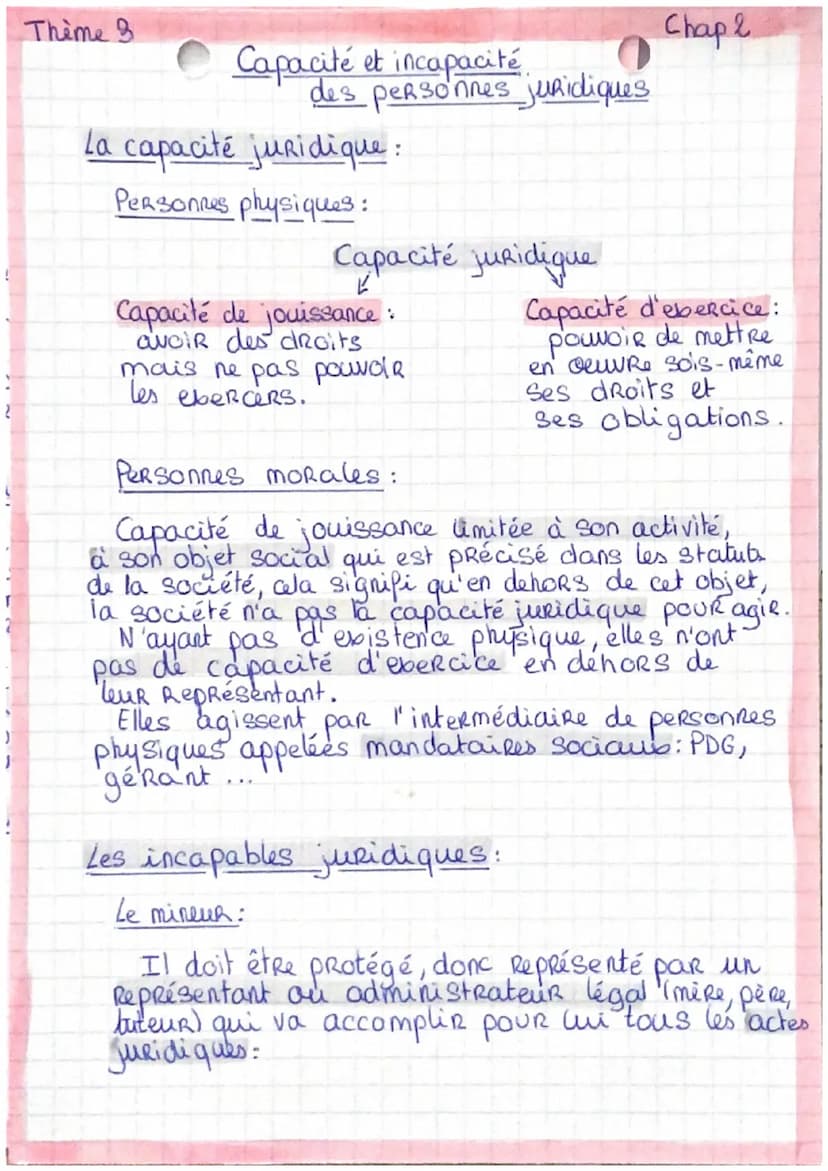 Thème 3
Chap 2
Capacité et incapacité
des personnes juridiques
La capacité juridique :
Personnes physiques :
Capacité juridique
Capacité de jouissance :
avoir des droits
mais ne pas pouvoir
les exercers.
Capacité d'exercice :
pouvoir de mettre
en oeuvre sois-même
ses droits et
ses obligations.
Personnes morales :
Capacité de jouissance limitée à son activité,
à son objet social qui est précisé dans les statuts
de la société, cela signifi qu'en dehors de cet objet,
la société n'a pas la capacité juridique pour agir.
N'ayant pas d'existence physique, elles n'ont
pas de capacité d'exercice en dehors de
leur représentant.
Elles agissent par l'intermédiaire de personnes
physiques appelées mandataires sociaux : PDG,
gérant ...
Les incapables juridiques :
Le mineur :
Il doit être protégé, donc représenté par un
représentant ou administrateur légal (mère, père,
tuteur) qui va accomplir pour lui tous les actes
juridiques :